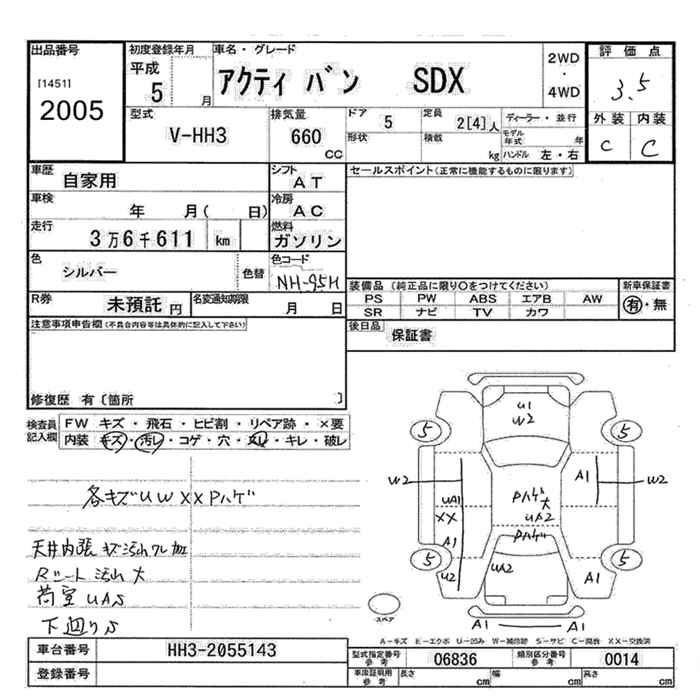 出品番号
[1451]
2005
初度登録年月
平成
5 月
車名・グレード
アクティ バン SDX
2WD
・
4WD
評価点
3.5
外装 内装
C C
型式
V-HH3
排気量
660
CC
ドア
5
形状
定員
2[4]人
積載
kg
ディーラー・並行
モデル年式 年
ハンドル 左・右
車歴
自家用
シフト
AT
車検
年 月( 日)
冷房
AC
走行
3万6千611 km
燃料
ガソリン
色
シルバー
色替
色コード
NH-95H
R券
未預託 円
名変通知期限
月 日
セールスポイント(正常に機能するものに限ります)
装備品 (純正品に限り○をつけてください)
PS PW ABS エアB AW
SR ナビ TV カワ
新車保証書
有・無
後日品
保証書
注意事項申告欄(不具合内容等は具体的に記入して下さい)
修復歴 有〔箇所 〕
検査員記入欄
FW キズ・飛石・ヒビ割・リペア跡・×要
内装 キズ・汚レ・コゲ・穴・スレ・キレ・破レ
各キズUW XX Pハゲ
天井内張 キズ汚れクレ 加
Rシート 汚れ大
荷室 UAS
下廻りS
U1
W2
5
5
W2
UA1
XX
A1
U2
Pハゲ
大
UA2
Pハゲ
A1
W2
5
5
UA2
A1
A1
A1
スペア
A-キズ E-エクボ U-凹み W-補修跡 S-サビ C-腐蝕 XX-交換済
車台番号
HH3-2055143
登録番号
型式指定番号
参考
06836
類別区分番号
参考
0014
車庫証明用
参考
長さ cm 幅 cm 高さ cm